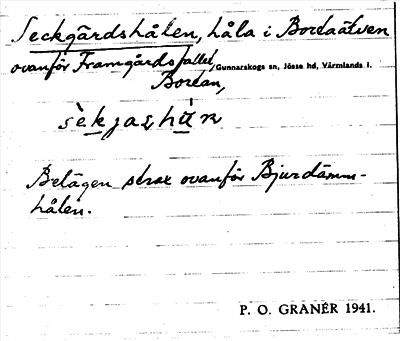 Seckgärdshålen, håla i Bordaälven
ovanför Framgårdsfallet, Gunnarskogs sn, Jösse hd, Värmlands l.
Bordan,
Belägen strax ovanför Bjurdämm-
hålen.
P. O. GRANÉR 1941.